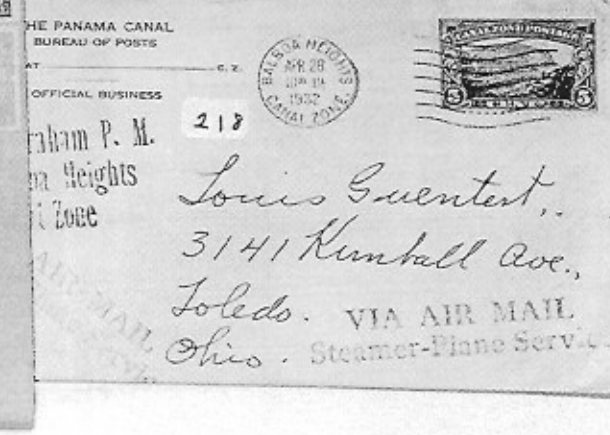 HE PANAMA CANAL
BUREAU OF POSTS
AT C. Z.
OFFICIAL BUSINESS
raham P. M.
oa Heights
l Zone
218
BALBOA HEIGHTS
APR 28
1932
CANAL ZONE
CANAL ZONE POSTAGE
5 CENTS 5
Louis Guentert,
3141 Kimball Ave.,
Toledo.
Ohio.
VIA AIR MAIL
Steamer-Plane Servic
AIR MAIL